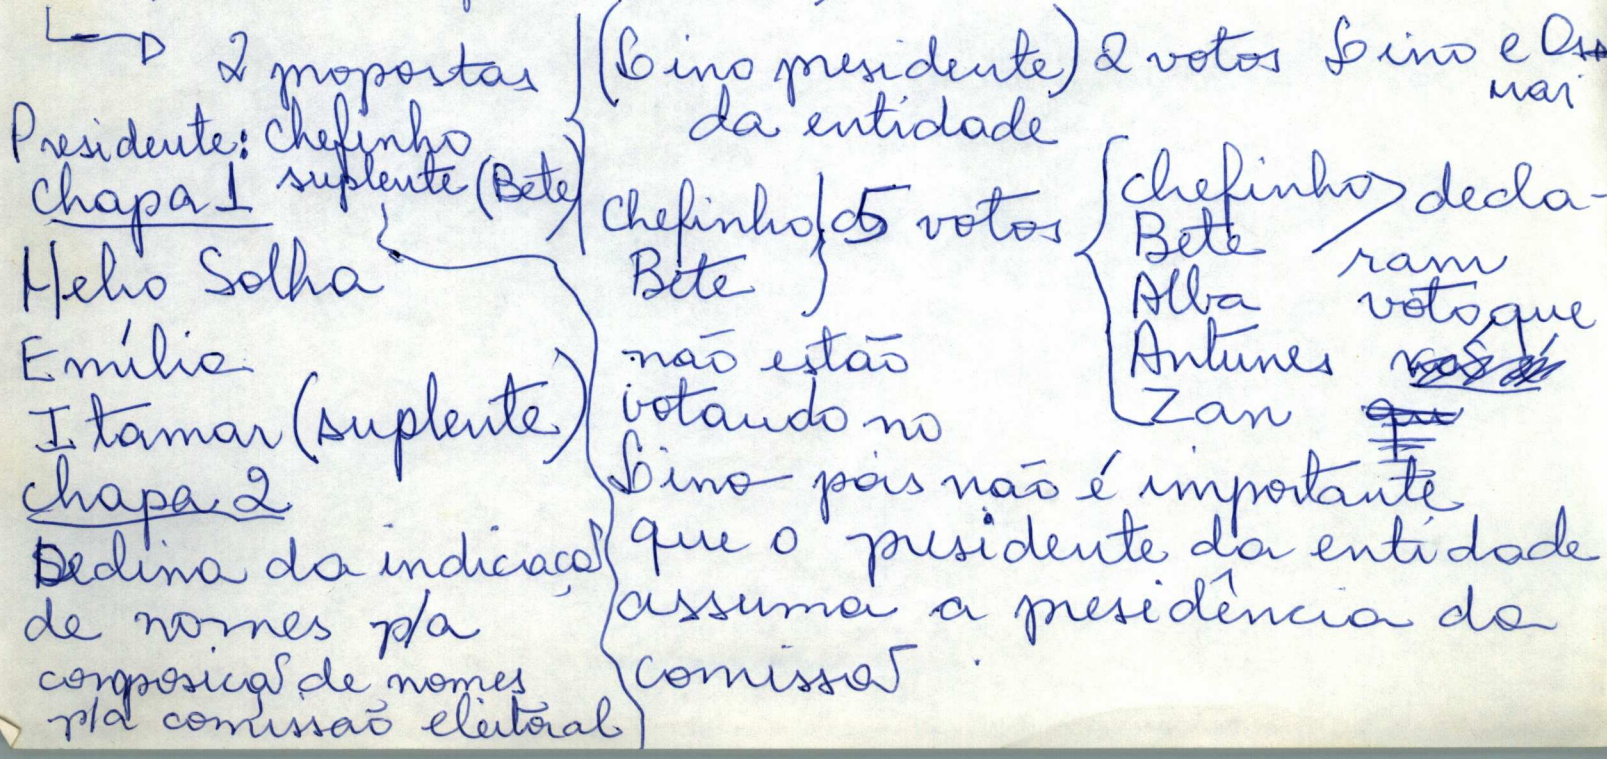 2 propostas
Presidente: Chefinho
suplente (Bete)
Chapa 1
Helio Solha
Emília
Itamar (suplente)
Chapa 2
Declina da indicação
de nomes p/a
composição de nomes
p/a comissão eleitoral
(Lino presidente) 2 votos Lino e Os
mar
da entidade
Chefinho } 5 votos { Chefinho > decla-
Bete
Bete ram
Alba voto que
Antunes
Zan
não estão
votando no
Lino pois não é importante
que o presidente da entidade
assuma a presidência da
comissão.